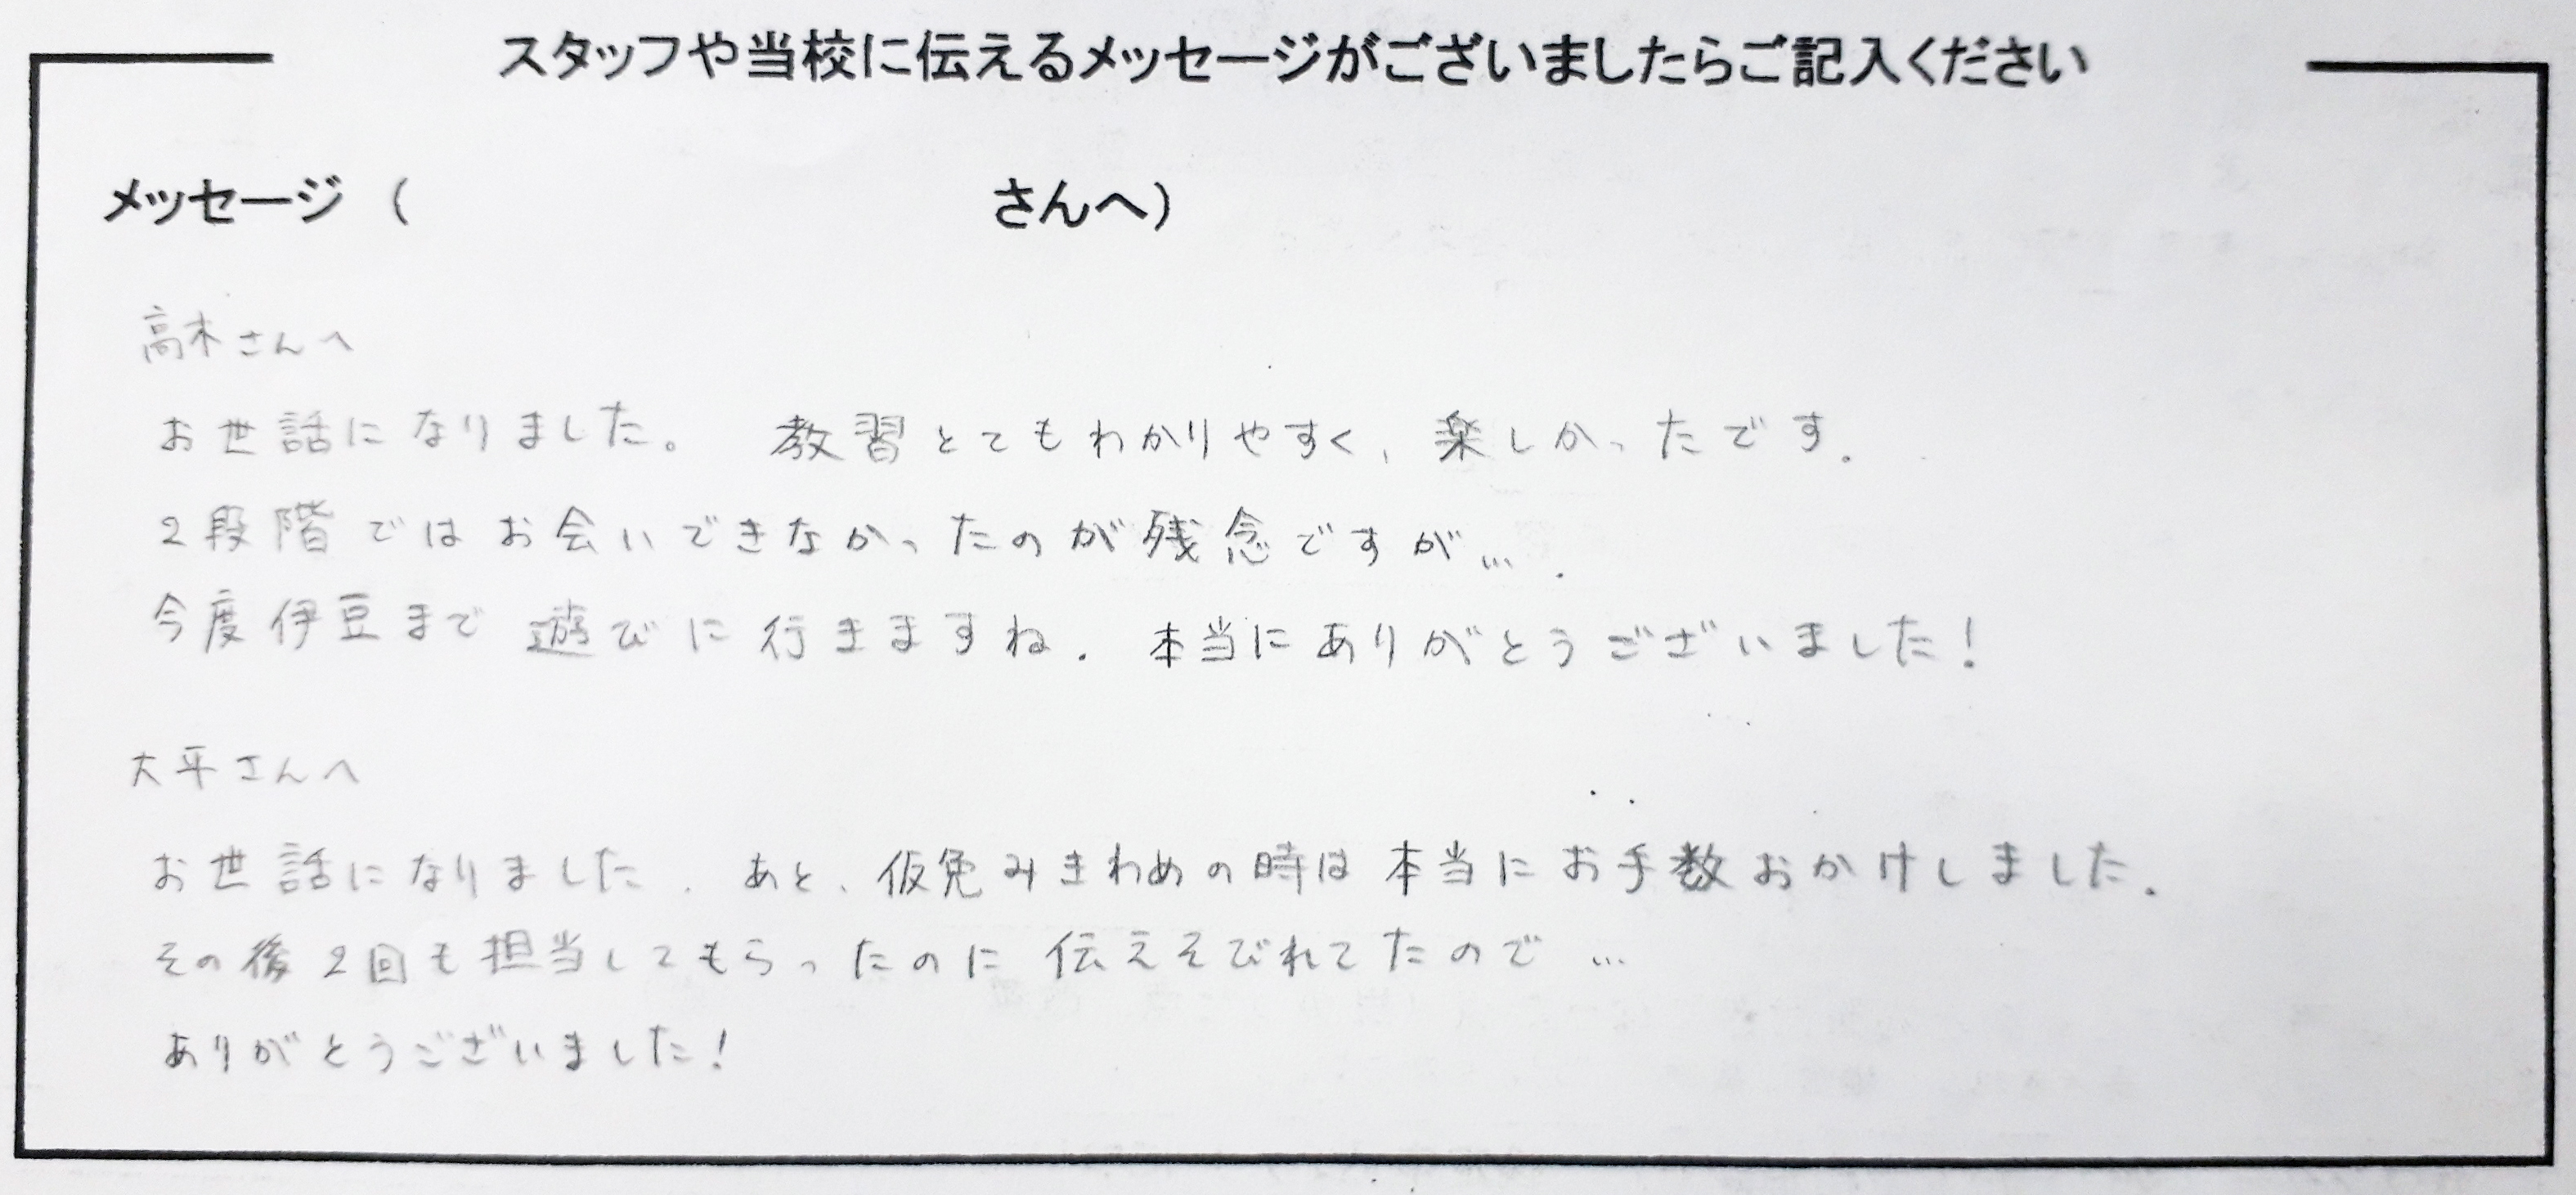 スタッフや当校に伝えるメッセージがございましたらご記入ください
メッセージ（　　　　　　　　　　さんへ）
高木さんへ
お世話になりました。 教習とてもわかりやすく、楽しかったです。
2段階ではお会いできなかったのが残念ですが….
今度伊豆まで遊びに行きますね。本当にありがとうございました！
大平さんへ
お世話になりました。あと、仮免みきわめの時は本当にお手数おかけしました。
その後2回も担当してもらったのに伝えそびれてたので…
ありがとうございました！